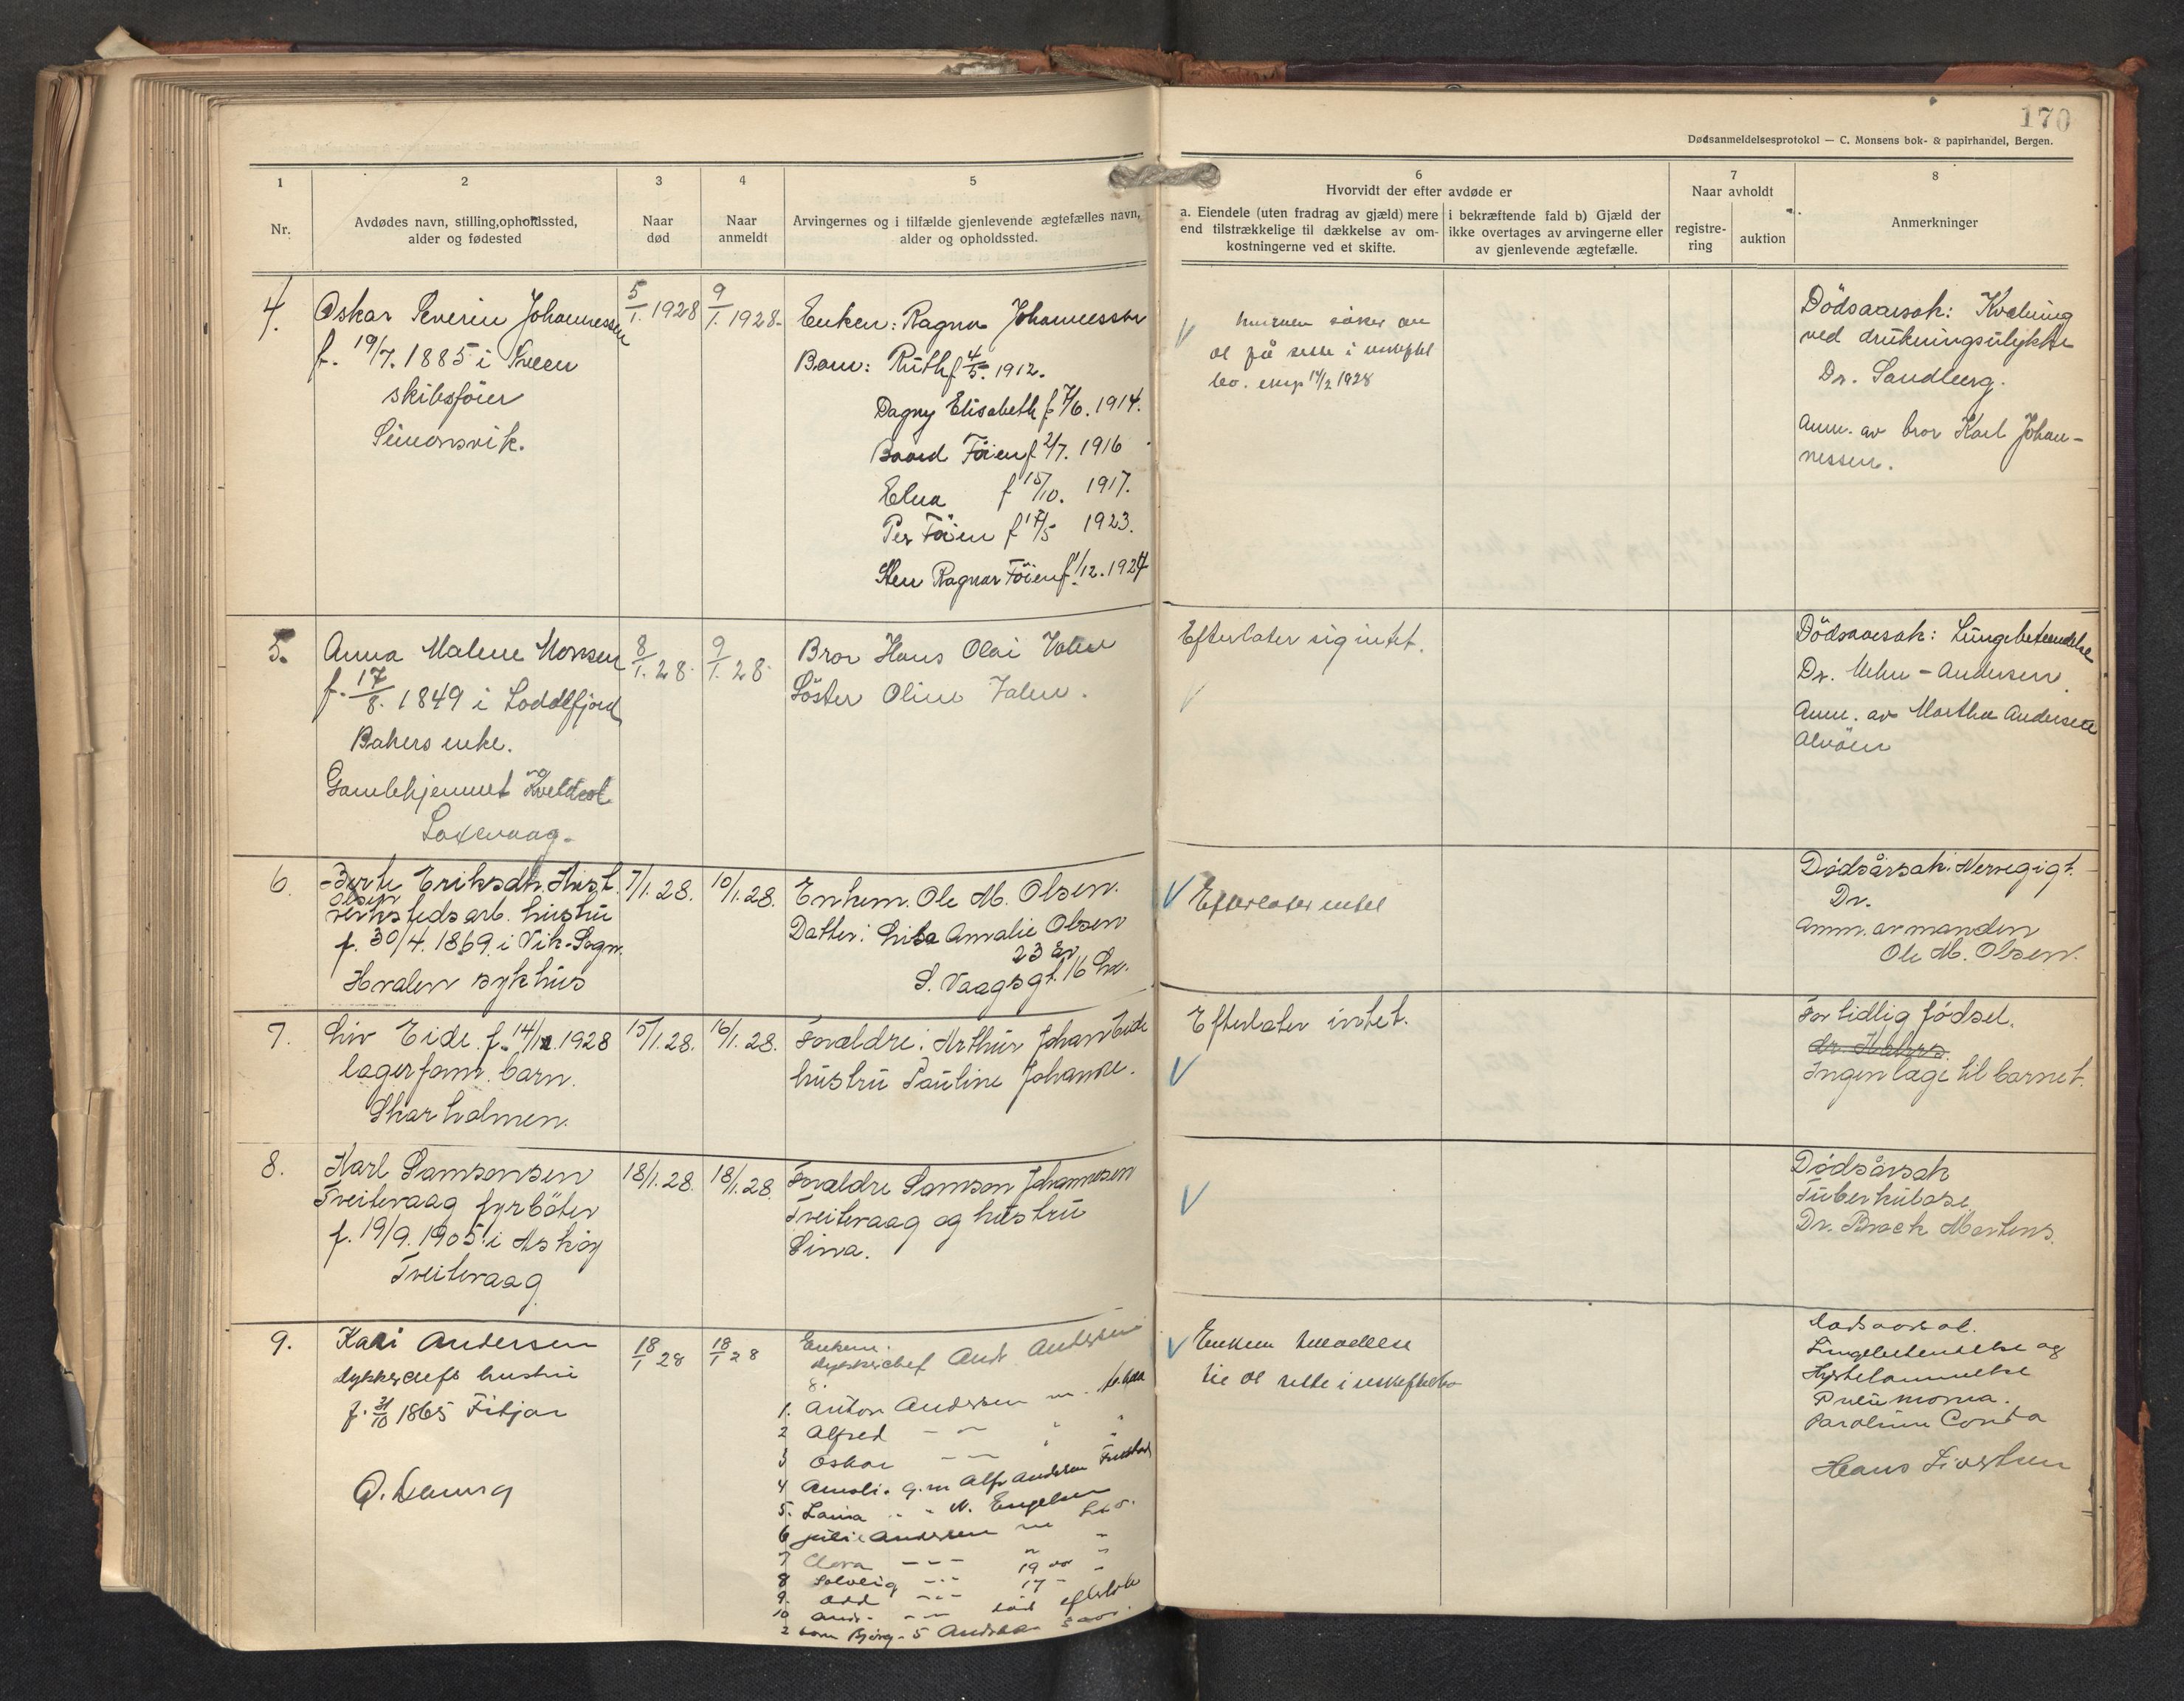 170
Dødsanmeldelsesprotokol — C. Monsens bok- & papirhandel, Bergen.
1
Nr.
2
Avdødes navn, stilling, opholdssted,
alder og fødested
3
Naar
død
4
Naar
anmeldt
5
Arvingernes og i tilfælde gjenlevende ægtefælles navn,
alder og opholdssted.
6
Hvorvidt der efter avdøde er
a. Eiendele (uten fradrag av gjæld) mere
end tilstrækkelige til dækkelse av om-
kostningerne ved et skifte.
i bekræftende fald b) Gjæld der
ikke overtages av arvingerne eller
av gjenlevende ægtefælle.
7
Naar avholdt
registre-
ring
auktion
8
Anmerkninger
4.
Oskar Severin Johannessen
f. 19/7. 1885 i Sveen
skibsförer
Simonsvik.
5/1. 1928
9/1. 1928.
Enken: Ragna Johannessen
Barn: Ruth f 4/5. 1912.
Dagny Elisabeth f 7/6. 1914.
Baard Föien f 2/7. 1916
Elna f 15/10. 1917.
Per Föien f 17/5 1923.
Sten Ragnar Föien f 1/12. 1924
söker om
at få sitte i uskiftet
bo. eksp 14/2 1928
Dödsaarsak: Kvælning
ved drukningsulykke
Dr. Sandberg.
Anm. av bror Karl Johan-
nessen.
5.
Anna Malene Monsen
f. 17/8. 1849 i Loddefjord
Bakers enke.
Gamlehjemmet Kveldsol
Laxevaag.
8/1. 28.
9/1. 28.
Bror Hans Olai Valen
Söster Oline Valen.
Efterlater sig intet.
Dödsaarsak: Lungebetændelse
Dr. Mehn-Andersen
Anm. av Martha Andersen
Alvöen
6.
Berte Eriksdtr. Hist.
Olsen
verkstedsarb. hustru
f. 30/4. 1869. i Vik-Sogn.
Hvalen sykhus
7/1. 28.
10/1. 28.
Enkem. Ole M. Olsen.
Datter: Lisa Amalie Olsen
23 år
S. Vaagsgt. 16 Lv.
Efterlater intet
Dödsårsak: Nervegigt.
Dr.
Anm. av manden
Ole M. Olsen.
7.
Liv Eide. f. 14/1. 1928
lagerform. barn.
Skarholmen.
15/1. 28.
16/1. 28.
Forældre: Arthur Johan Eide
hustru Pauline Johanne.
Efterlater intet.
For tidlig födsel.
Ingen læge til barnet.
8.
Karl Samsonsen
Tveitevaag fyrböter
f. 19/9. 1905 i Asköy
Tveitevaag
18/1. 28.
18/1. 28.
Forældre Samson Johannesen
Tveitevaag og hustru
Sina.
Dödsårsak
Tuberkulose
Dr. Brock Martens.
9.
Kari Andersen
dykkerchefs hustru
f. 31/10 1865 Fitjar
18/1 28
18/1 28
Enkem.
dykkerchef Andr. Andersen
8.
1. Anton Andersen m.
2 Alfred — — " "
3 Oskar — — " "
4 Amali. g. m Alfr Andersen
5. Laura " " N. Engelsen
6 Julie Andersen Lax.
7 Clara — — — " "
8 Solveig — — 19 aar "
9. Odd — — 17 - "
10 Andr. — — död efterlatt
2 barn Bjørg - 5 Andreas 3 aar.
Enkem
til at sitte i uskiftet bo
Dødsaarsak.
Lungebetendelse og
Hjertelammelse
Pneumonia.
Paralisis Cordis